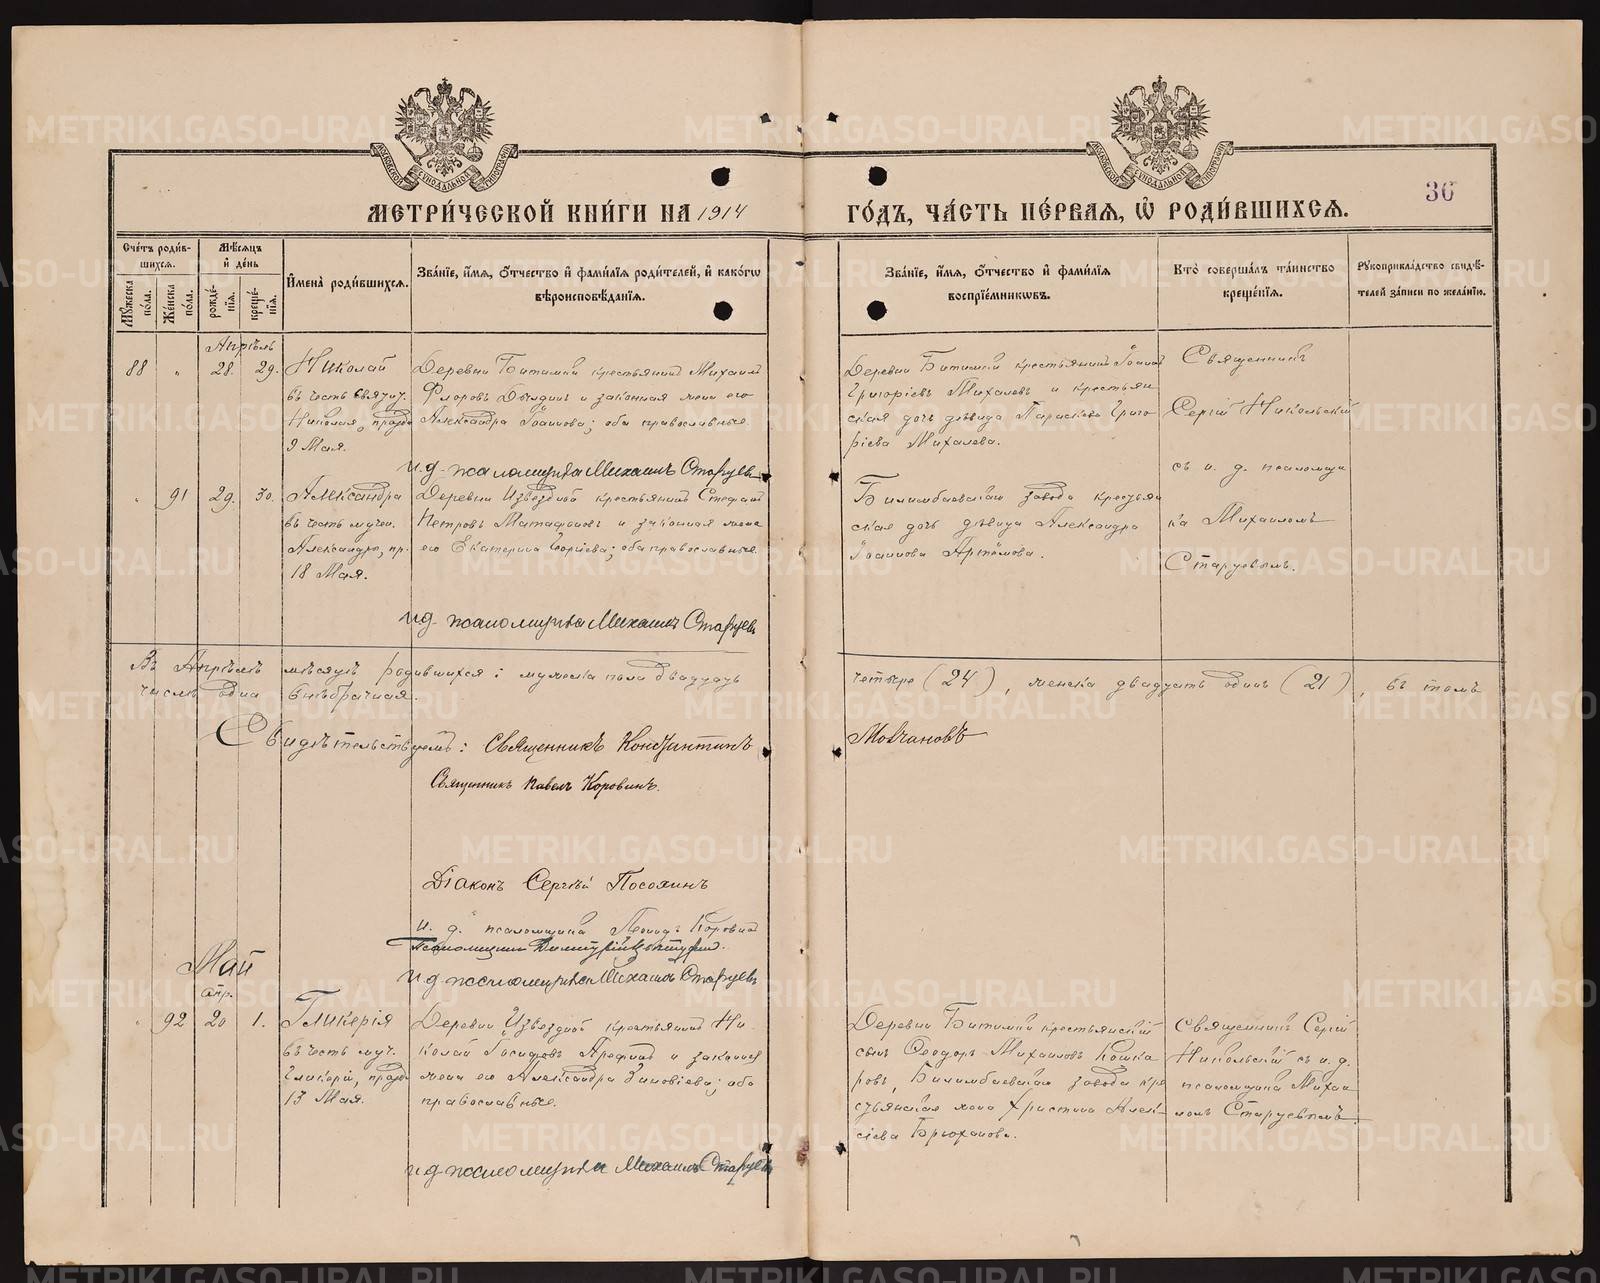 МЕТРИ́ЧЕСКОЙ КНИ́ГИ НА 1914 ГО́ДЪ, ЧА́СТЬ ПЕ́РВАЯ, Ѡ РОДИ́ВШИХСЯ.
36
Сче́тъ роди́вшихся.
Му́жеска по́ла.
Же́нска по́ла.
Мѣ́сяцъ и҆ де́нь
рожде́нїя.
креще́нїя.
И҆мена̀ роди́вшихся.
Зва́нїе, и҆́мя, ѻ҆́тчество и҆ фами́лїя роди́телей, и҆ како́гѡ вѣроисповѣ́данїя.
Зва́нїе, и҆́мя, ѻ҆́тчество и҆ фами́лїя воспрїе́мникѡвъ.
Кто̀ соверша́лъ та́инство креще́нїя.
Рꙋкоприкла́дство свидѣ́телей за́писи по жела́нїю.
Апрѣль
88 " 28. 29.
Николай
въ честь святит.
Николая, празд.
9 Мая.
Деревни Битимки крестьянинъ Михаилъ
Флоровъ и законная жена его
Александра Іоаннова; оба православные.
и.д. псаломщика Михаилъ Старцевъ
Деревни Битимки крестьянинъ Іоаннъ
Григорьевъ Михалевъ и крестьян
ская дочь дѣвица Параскева Григо
рьева Михалева.
Священникъ
Сергій Никольскій
съ и. д. псаломщи
ка Михаиломъ
Старцевымъ.
" 91 29. 30.
Александра
въ честь мучен.
Александры, пр.
18 Мая.
Деревни Извѣздной крестьянинъ Стефанъ
Петровъ Матафоновъ и законная жена
его Екатерина Георгіева; оба православные.
и.д. псаломщика Михаилъ Старцевъ
Билимбаевскаго завода крестьян
ская дочь дѣвица Александра
Іоаннова Артёмова.
Въ Апрѣлѣ мѣсяцѣ родившихся: мужеска пола двадцать
четыре (24), женска двадцать одинъ (21), въ томъ
числѣ одна внѣбрачная.
Свидѣтельствуемъ: Священникъ Константинъ
Молчановъ
Священникъ Павелъ Коровинъ.
Діаконъ Сергѣй Посохинъ
и. д. псаломщика Леонидъ Коровинъ
и.д. псаломщика Михаилъ Старцевъ
Май
апр.
" 92 20 1.
Гликерія
въ честь муч.
Гликеріи, празд.
13 Мая.
Деревни Извѣздной крестьянинъ Ни
колай Іосифовъ Арефинъ и законная
жена его Александра Зиновіева; оба
православные.
и.д. псаломщика Михаилъ Старцевъ
Деревни Битимки крестьянскій
сынъ Ѳеодоръ Михаиловъ Кошка
ровъ, Билимбаевскаго завода кре
стьянская жена Христина Алек
сіева Брюханова.
Священникъ Сергій
Никольскій съ и.д.
псаломщика Михаи
ломъ Старцевымъ.
METRIKI.GASO-URAL.RU